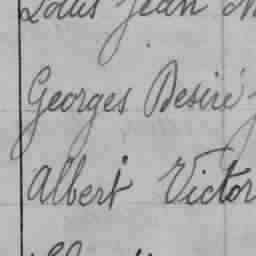 Louis Jean
Georges Desiré
Albert Victor